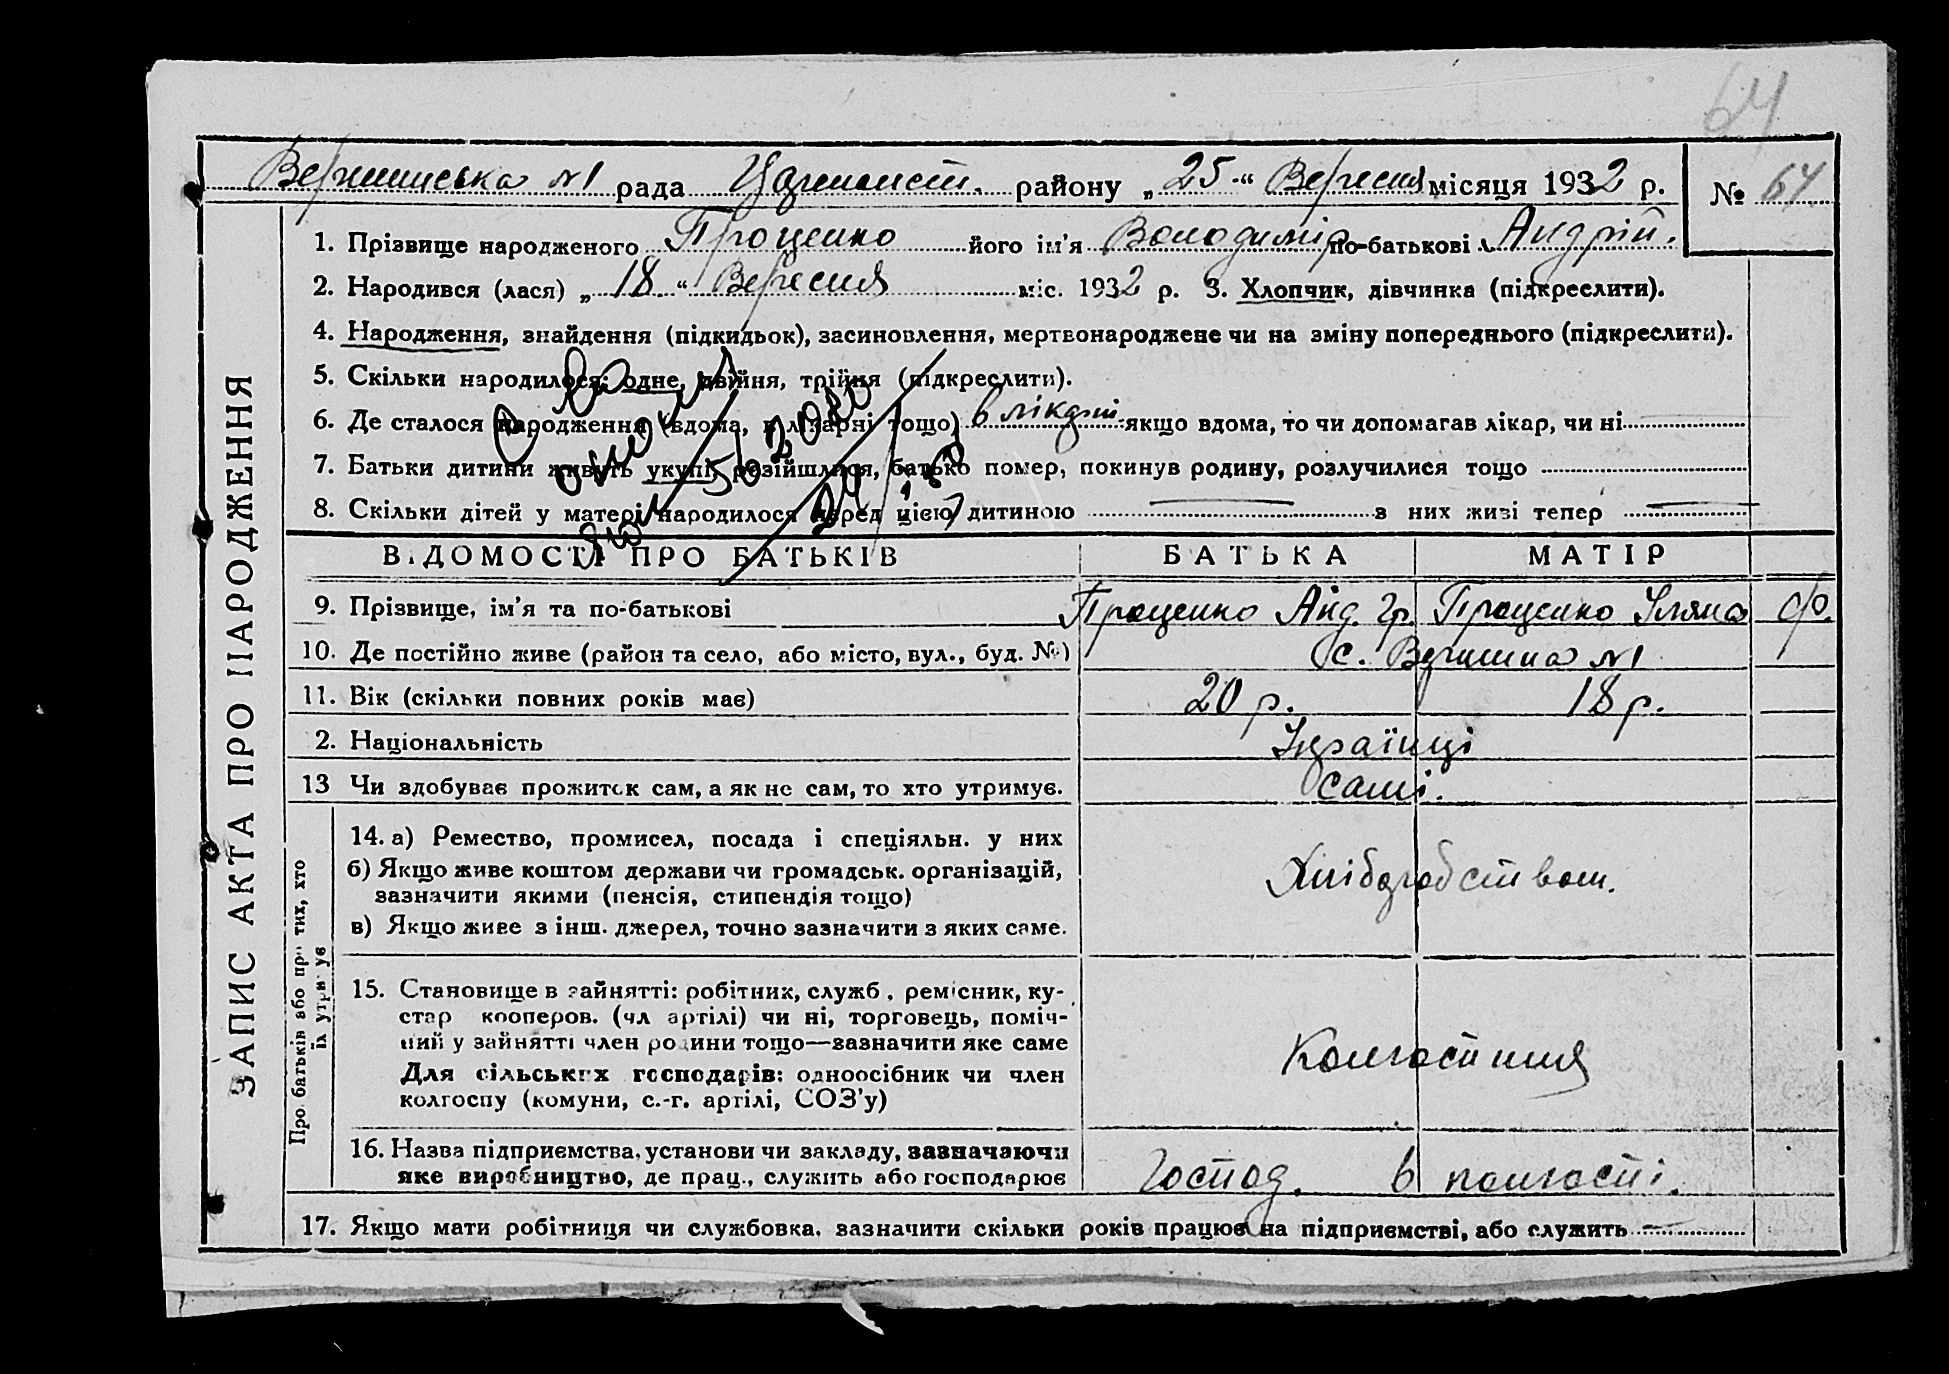 64
Вершинська №1 рада Царичанськ. району „ 25 “ Вересня місяця 1932 р. № 64
1. Прізвище народженого Проценко його ім'я Володимір по-батькові Андрій.
2. Народився (лася) „ 18 “ Вересня міс. 1932 р. 3. Хлопчик, дівчинка (підкреслити).
4. Народження, знайдення (підкидьок), засиновлення, мертвонароджене чи на зміну попереднього (підкреслити).
5. Скільки народилося: одне, двійня, трійня (підкреслити).
6. Де сталося народження (вдома, в лікарні тощо) в лікарні якщо вдома, то чи допомагав лікар, чи ні
7. Батьки дитини живуть укупі, розійшлися, батько помер, покинув родину, розлучилися тощо
8. Скільки дітей у матері народилося перед цією дитиною — з них живі тепер —
ЗАПИС АКТА ПРО НАРОДЖЕННЯ
ВІДОМОСТІ ПРО БАТЬКІВ БАТЬКА МАТІР
9. Прізвище, ім'я та по-батькові Проценко Анд. Гр. Проценко Уляна
10. Де постійно живе (район та село, або місто, вул., буд. №) с. Вершина №1
11. Вік (скільки повних років має) 20 р. 18 р.
2. Національність Українці
13 Чи здобуває прожиток сам, а як не сам, то хто утримує. самі.
Про батьків або про тих, хто
їх утримує
14. а) Ремество, промисел, посада і спеціяльн. у них
б) Якщо живе коштом держави чи громадськ. організацій,
зазначити якими (пенсія, стипендія тощо)
Хліборобством.
в) Якщо живе з інш. джерел, точно зазначити з яких саме.
15. Становище в зайнятті: робітник, служб., ремісник, ку-
стар кооперов. (чл артілі) чи ні, торговець, поміч-
ний у зайнятті член родини тощо—зазначити яке саме
Колгоспник
Для сільських господарів: одноосібник чи член
колгоспу (комуни, с.-г. артілі, СОЗ'у)
16. Назва підприємства, установи чи закладу, зазначаючи
яке виробництво, де прац., служить або господарює Господ. в колгоспі.
17. Якщо мати робітниця чи службовка, зазначити скільки років працює на підприємстві, або служить —